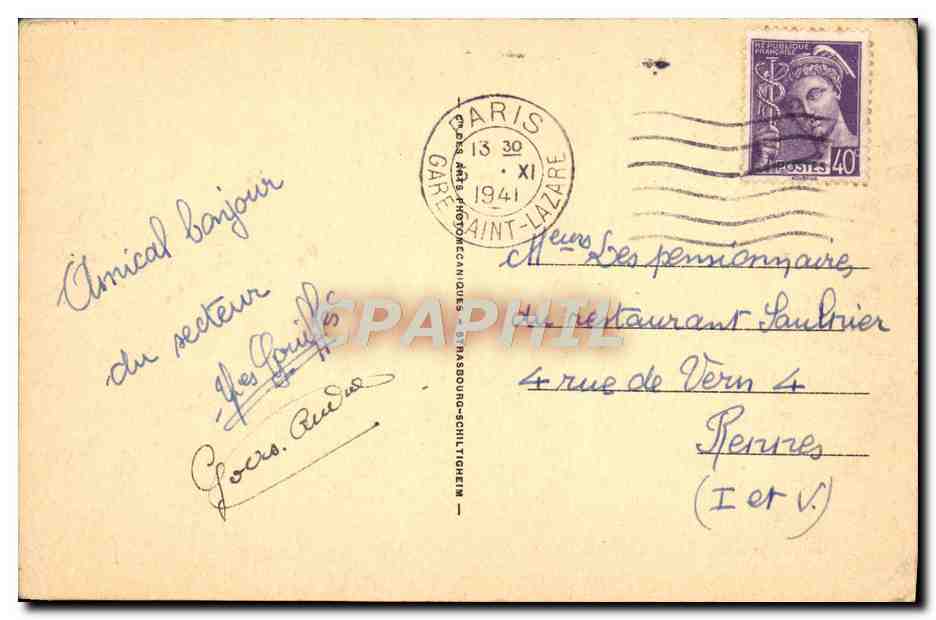 Amical bonjour
du secteur
Yves
André
Cie DES ARTS PHOTOMECANIQUES - STRASBOURG-SCHILTIGHEIM
PARIS
13 30
XI
1941
GARE SAINT-LAZARE
REPUBLIQUE
FRANÇAISE
POSTES 40c
Meurs Les pensionnaires
du restaurant Saulnier
4 rue de Vern 4
Rennes
(I et V.)
CPAPHIL